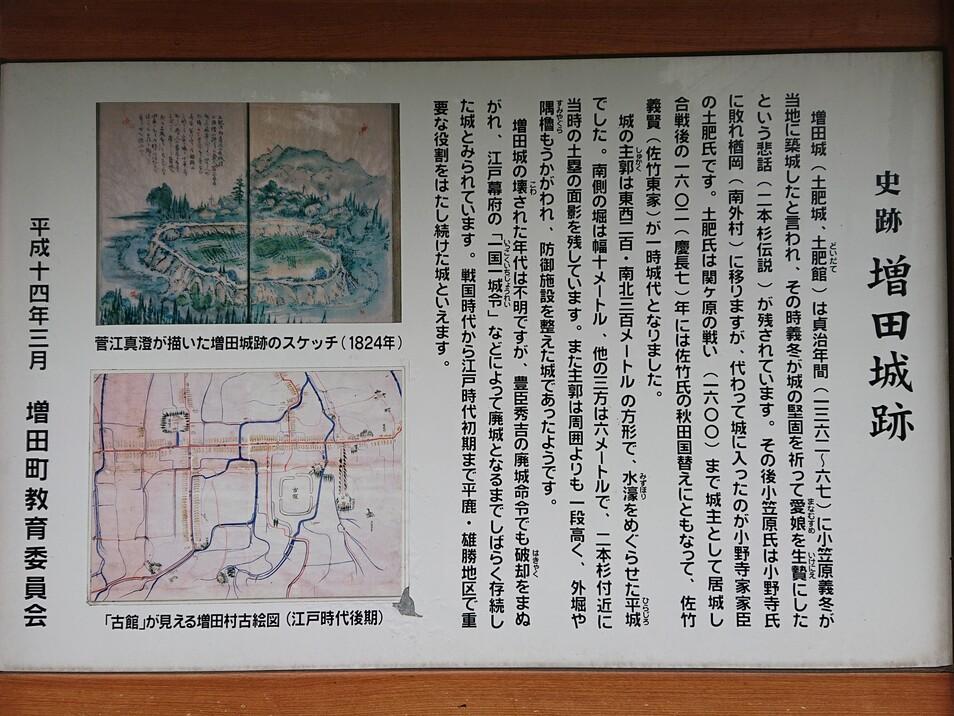 史跡 増田城跡
増田城（土肥城、土肥館）は貞治年間（一三六二～六七）に小笠原義冬が
当地に築城したと言われ、その時義冬が城の堅固を祈って愛娘を生贄にした
という悲話（二本杉伝説）が残されています。その後小笠原氏は小野寺氏
に敗れ楢岡（南外村）に移りますが、代わって城に入ったのが小野寺家家臣
の土肥氏です。土肥氏は関ヶ原の戦い（一六〇〇）まで城主として居城し
合戦後の一六〇二（慶長七）年には佐竹氏の秋田国替えにともなって、佐竹
義賢（佐竹東家）が一時城代となりました。
城の主郭は東西二百・南北三百メートルの方形で、水濠をめぐらせた平城
でした。南側の堀は幅十メートル、他の三方は六メートルで、二本杉付近に
当時の土塁の面影を残しています。また主郭は周囲よりも一段高く、外堀や
隅櫓もうかがわれ、防御施設を整えた城であったようです。
増田城の壊された年代は不明ですが、豊臣秀吉の廃城命令でも破却をまぬ
がれ、江戸幕府の「一国一城令」などによって廃城となるまでしばらく存続し
た城とみられています。戦国時代から江戸時代初期まで平鹿・雄勝地区で重
要な役割をはたし続けた城といえます。
菅江真澄が描いた増田城跡のスケッチ（1824年）
古舘
「古館」が見える増田村古絵図（江戸時代後期）
平成十四年三月 増田町教育委員会